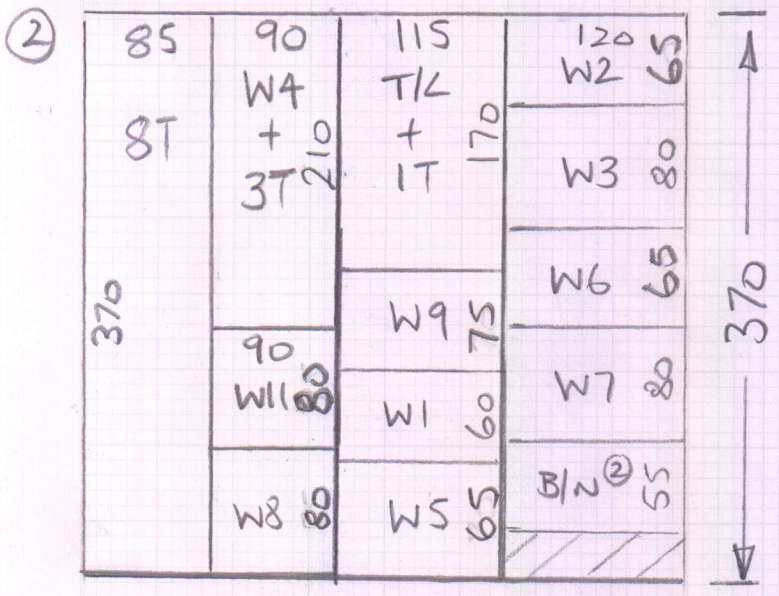 ②
85
8T
370
90
W4
+
3T
210
90
W11 80
W8 80
115
T/L
+
1T
170
W9 75
W1 60
W5 65
120
W2 65
W3 80
W6 65
W7 80
B/N ② 55
370